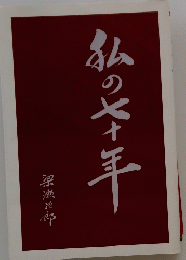 私の七十年
梁瀬次郎